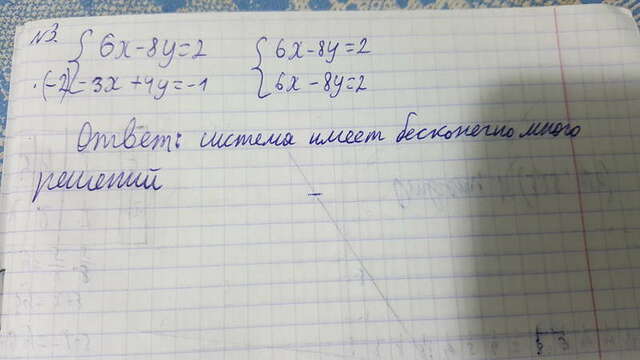 №3. { 6x-8y=2 { 6x-8y=2
·(-2) -3x+4y=-1 6x-8y=2
Ответ: система имеет бесконечно много
решений